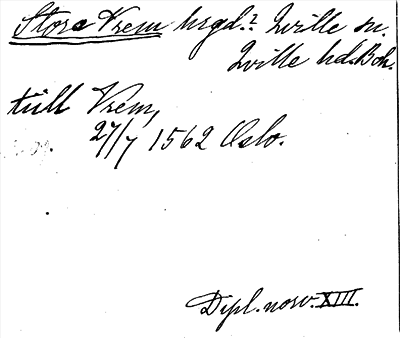 Stora Vrem hrgd.? Qville sn.
Qville hd. Boh.
till Vrem,
27/7 1562 Oslo.
Dipl. norv. XIII.